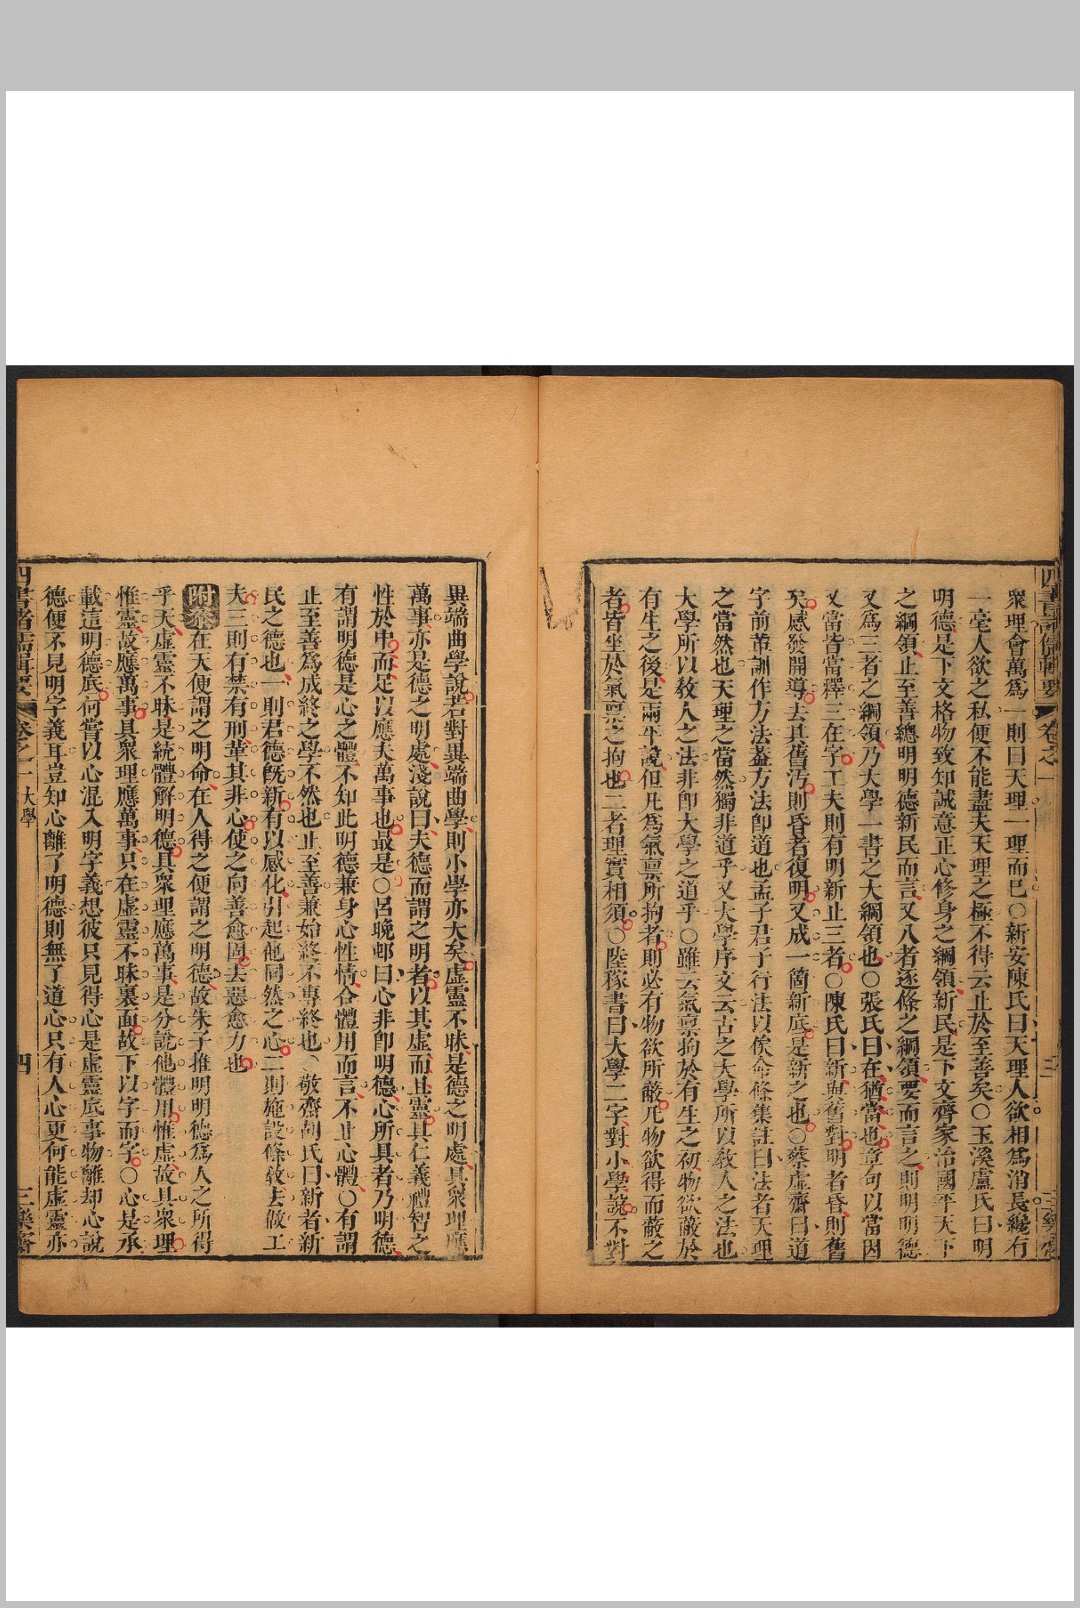 四書諸儒輯要 卷之一
衆理會萬爲一則曰天理一理而已○新安陳氏曰天理人欲相爲消長纔有
一毫人欲之私便不能盡夫天理之極不得云止於至善矣○玉溪盧氏曰明
明德是下文格物致知誠意正心修身之綱領新民是下文齊家治國平天下
之綱領止至善總明明德新民而言又八者逐條之綱領要而言之則明明德
又爲三者之綱領乃大學一書之大綱領也○張氏曰在猶當也章句以當因
又當皆當釋三在字工夫則有明新止三者○陳氏曰新與舊對明者昏則舊
矣感發開導去其舊汚則昏者復明又成一箇新底是新之也○蔡虛齋曰道
字前輩訓作方法葢方法卽道也孟子君子行法以俟命條集註曰法者天理
之當然也天理之當然獨非道乎又大學序文云古之大學所以敎人之法也
大學所以敎人之法非卽大學之道乎○雖云氣禀拘於有生之初物欲蔽於
有生之後是兩平說但凡爲氣禀所拘者則必有物欲所蔽凡物欲得而蔽之
者皆坐於氣禀之拘也二者理實相須○陸稼書曰大學二字對小學說不對
異端曲學說若對異端曲學則小學亦大矣虛靈不昧是德之明處具衆理應
萬事亦是德之明處淺說曰夫德而謂之明者以其虛而且靈具仁義禮智之
性於中而足以應夫萬事也最是○呂晚邨曰心非卽明德心所具者乃明德
有謂明德是心之體不知此明德兼身心性情合體用而言不止心體○有謂
止至善爲成終之學不然也止至善兼始終不專終也○敬齋胡氏曰新者新
民之德也一則君德旣新有以感化引起他同然之心二則施設條敎去做工
夫三則有禁有刑革其非心使之向善愈固去惡愈力也
附叅在天便謂之明命在人得之便謂之明德故朱子推明明德爲人之所得
乎天虛靈不昧是統體解明德具衆理應萬事是分說他體用惟虛故具衆理
惟靈故應萬事具衆理應萬事只在虛靈不昧裏面故下以字而字○心是承
載這明德底何嘗以心混入明字義想彼只見得心是虛靈底事物離却心說
德便不見明字義耳豈知心離了明德則無了道心只有人心更何能虛靈亦
四書諸儒輯要 卷之一 大學 四 三樂齋